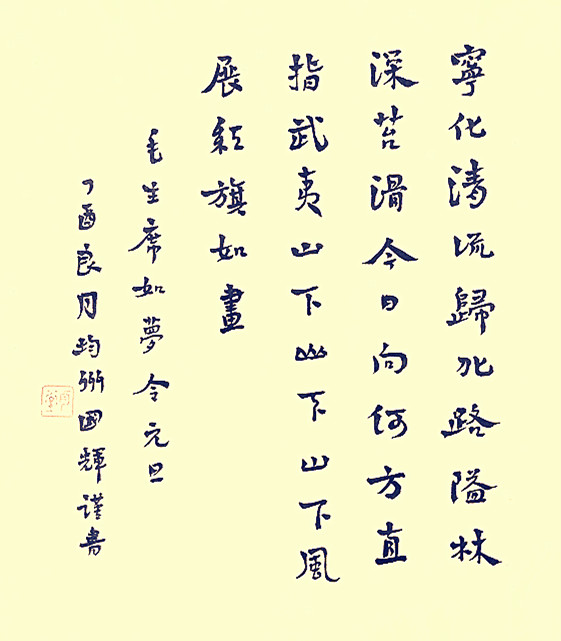 寧化清流歸化路隘林
深苔滑今日向何方直
指武夷山下山下山下風
展紅旗如畫
毛主席如夢令元旦
丁酉良月均州國輝謹書